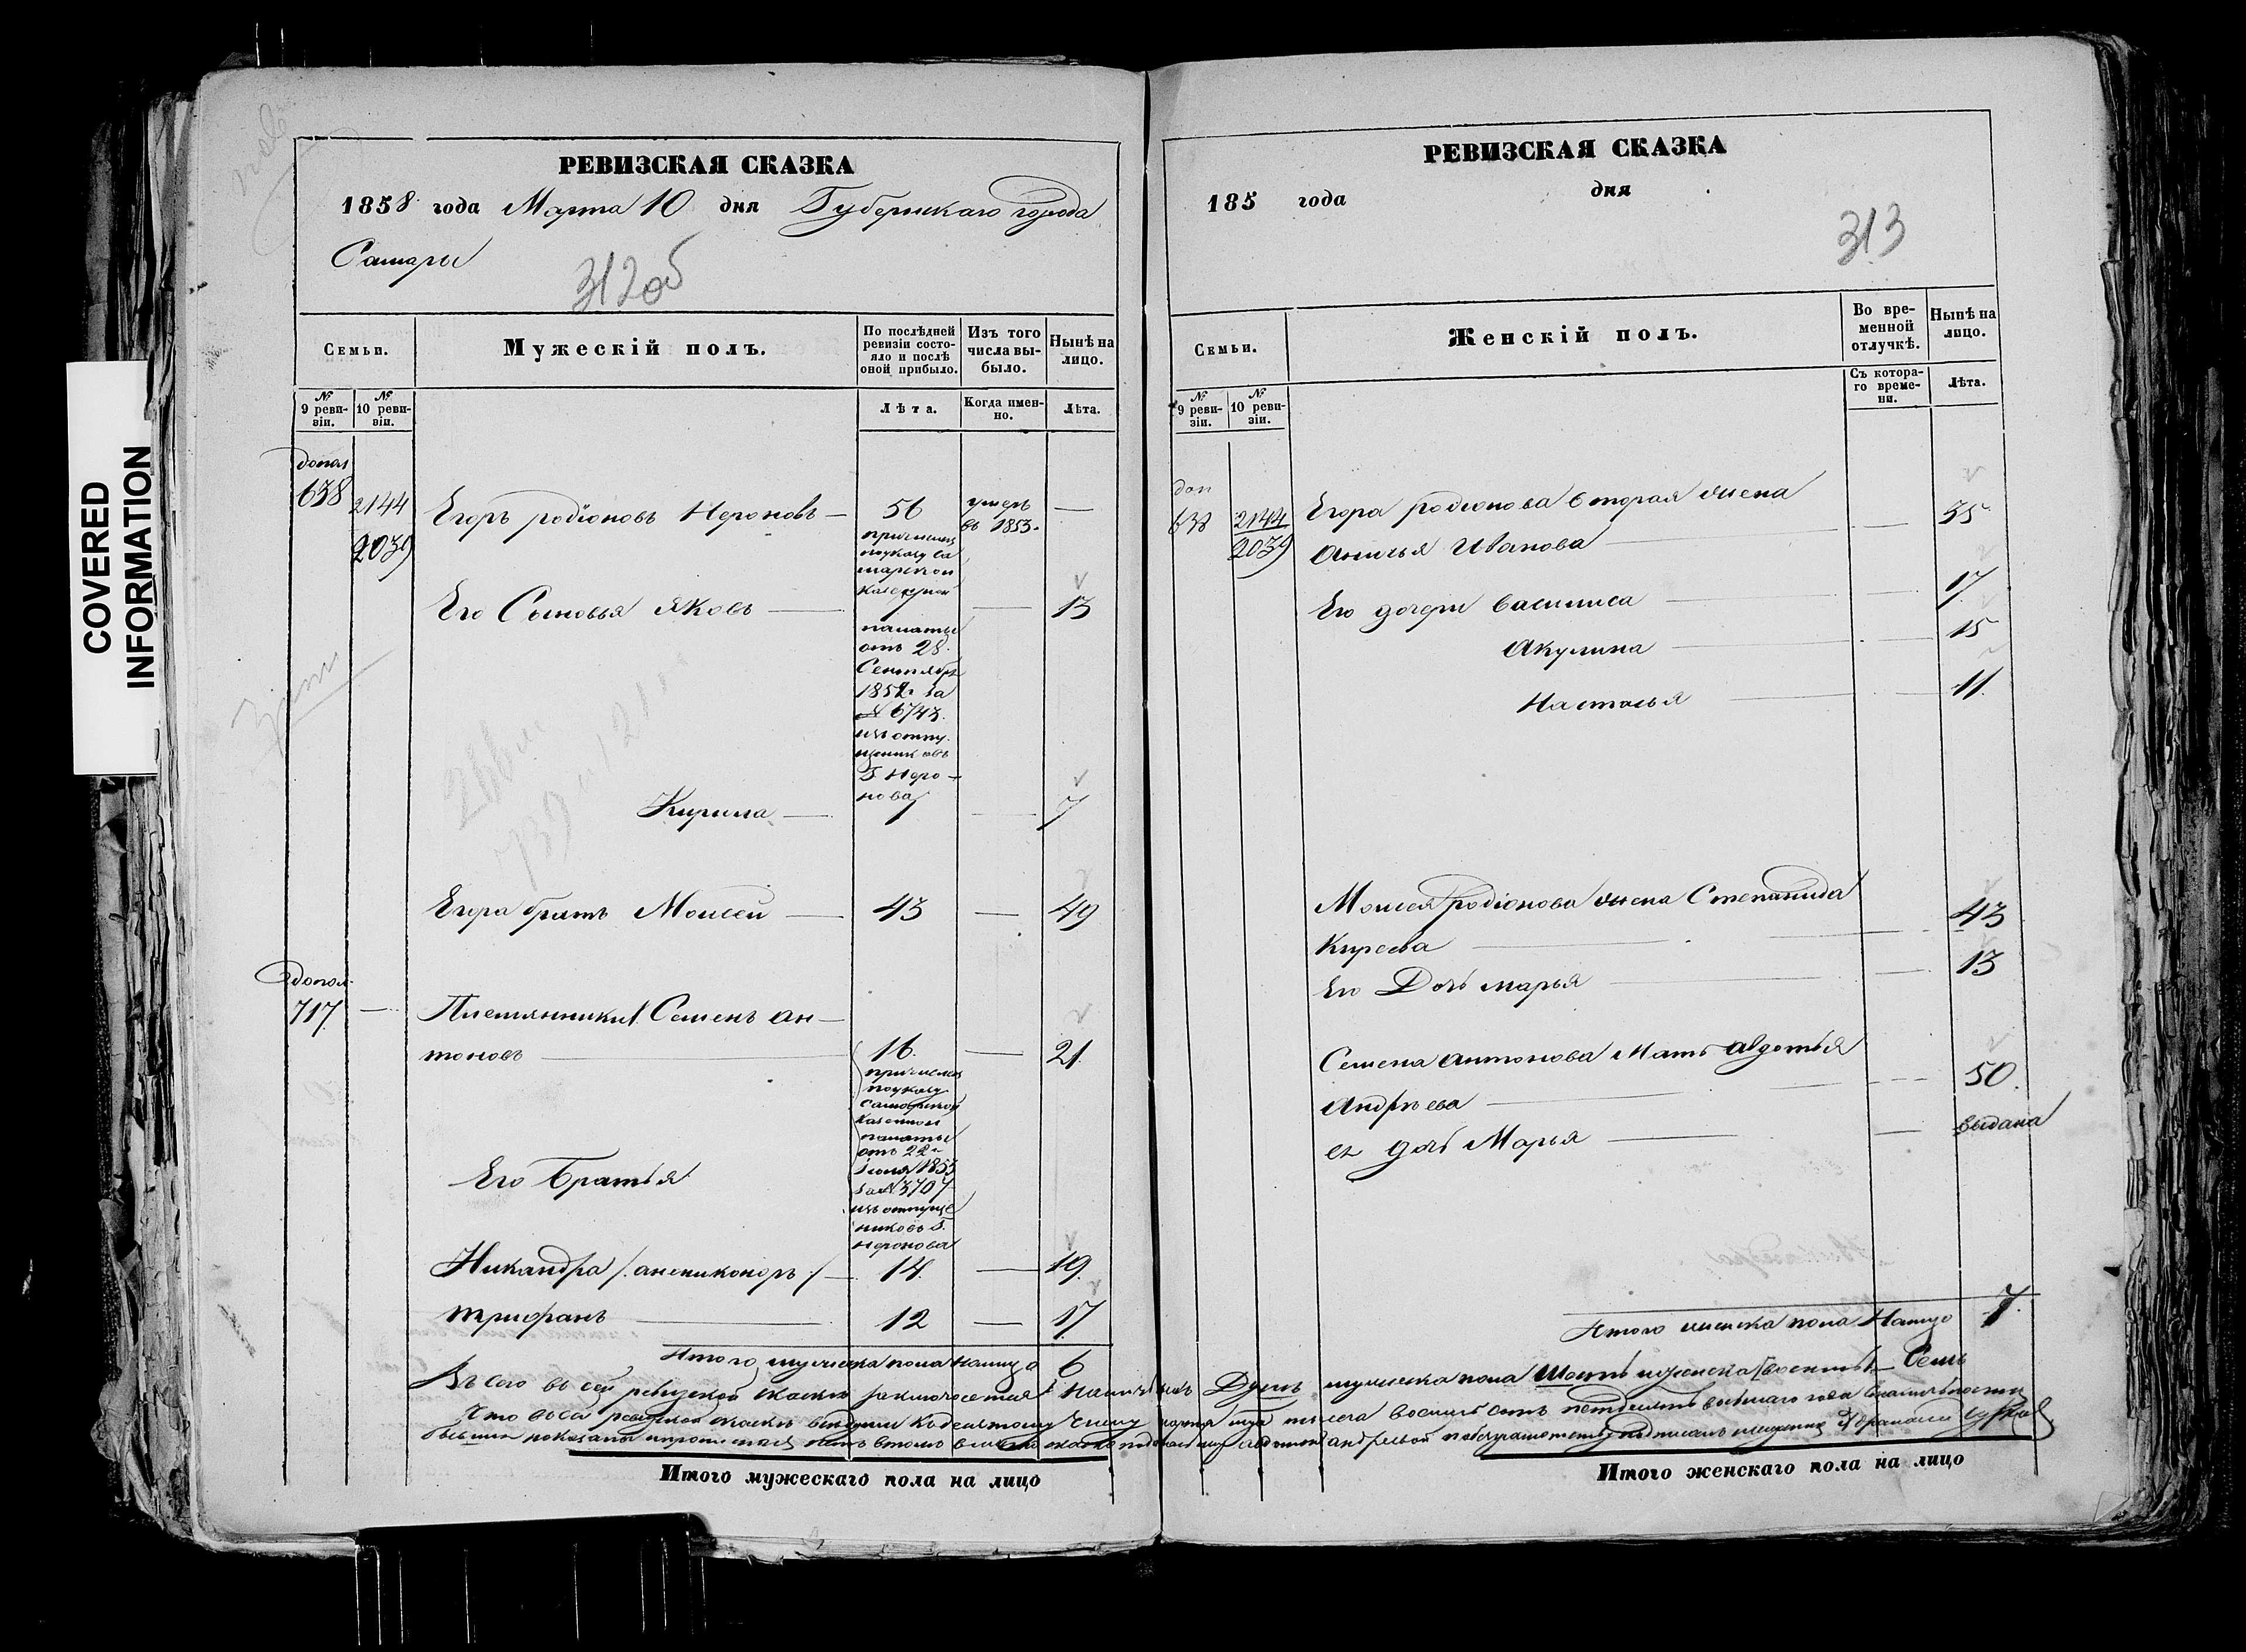 COVERED
INFORMATION
РЕВИЗСКАЯ СКАЗКА
1858 года Марта 10 дня Губернскаго города
Самары
312об
Семьи.
Мужескій полъ.
По послѣдней ревизіи состояло и послѣ оной прибыло.
Изъ того числа выбыло.
Нынѣ на лицо.
№ 9 ревизіи.
№ 10 ревизіи.
Лѣта.
Когда именно.
Лѣта.
допол
638
2144
2039
Егоръ родіоновъ Нероновъ — 56
умеръ
въ 1853.
—
причислен
по указу Са
марской
казенной
палаты
отъ 28.
Сентября
1852 за
№ 6743.
изъ отпу
щенниковъ
Г Неро-
нова
Его Сыновья Яковъ — — 13
Кирила — — 7
Егора братъ Моисей — 43 — 49
допол.
717. —
Племянники Семенъ ан-
тоновъ — 16. — 21.
причислен
по указу
Самарской
казенной
палаты
отъ 22
Іюля 1853
за № 3707
изъ отпуще
никовъ Г.
Неронова
Его Братья
Никандра /. ани никоноръ / — 14. — 19.
трифанъ — 12 — 17
Итого мужеска пола налицо 6
Итого мужескаго пола на лицо
РЕВИЗСКАЯ СКАЗКА
185 года дня
313
Семьи.
Женскій полъ.
Во временной отлучкѣ.
Нынѣ на лицо.
№ 9 ревизіи.
№ 10 ревизіи.
Съ котораго времени.
Лѣта.
доп
638
2144
2039
Егора родіонова вторая жена
Анисья Иванова — — 35.
Его дочери василиса — — 17.
Акулина — — 15
Настасья — — 11.
Моисея родіонова жена Степанида
Киреева — — 43
Его Дочь марья — — 13
Семена антонова Мать авдотья
Андреева — — 50.
ея дочь Марья — — выдана
Итого женска пола Налицо 7.
Всего въ сей ревизской сказкѣ заключается Наличныхъ Душъ мужеска пола Шесть женска Семь
Итого женскаго пола на лицо